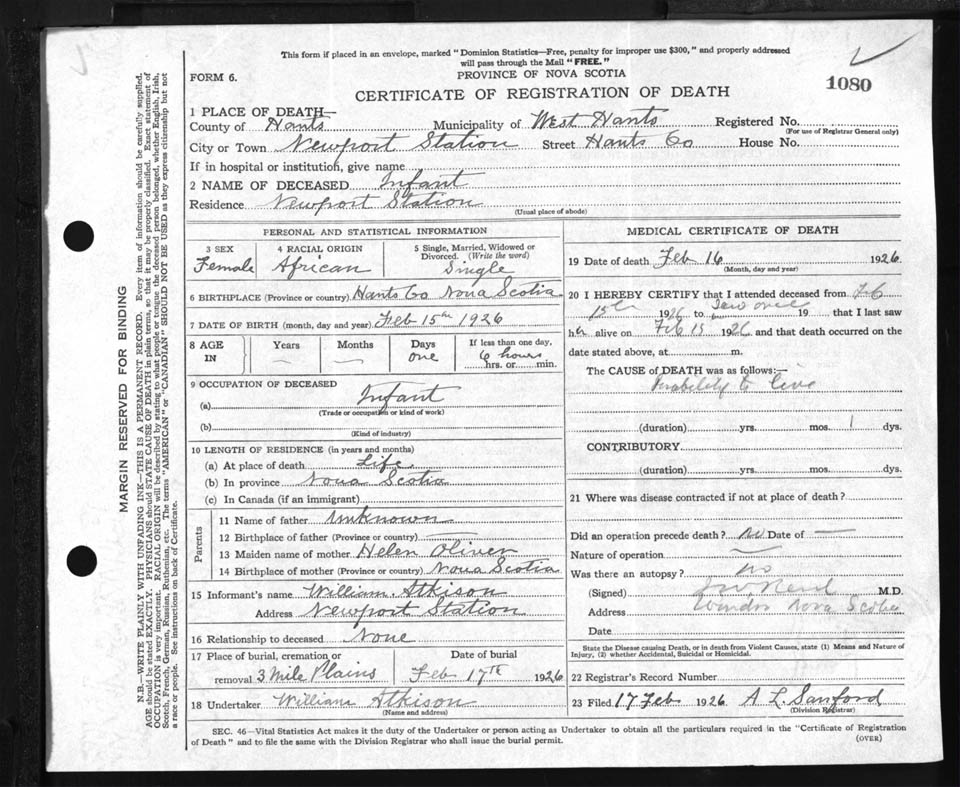 This form if placed in an envelope, marked "Dominion Statistics—Free, penalty for improper use $300," and properly addressed
will pass through the Mail "FREE."
FORM 6.
PROVINCE OF NOVA SCOTIA
1080
CERTIFICATE OF REGISTRATION OF DEATH
1 PLACE OF DEATH—
County of Hants Municipality of West Hants Registered No.
(For use of Registrar General only)
City or Town Newport Station Street Hants Co House No.
If in hospital or institution, give name
2 NAME OF DECEASED Infant
Residence Newport Station
(Usual place of abode)
PERSONAL AND STATISTICAL INFORMATION
3 SEX
Female
4 RACIAL ORIGIN
African
5 Single, Married, Widowed or
Divorced. (Write the word)
Single
6 BIRTHPLACE (Province or country) Hants Co Nova Scotia
7 DATE OF BIRTH (month, day and year) Feb 15th 1926
8 AGE
IN
Years
—
Months
—
Days
one
If less than one day,
6 hours
hrs. or min.
9 OCCUPATION OF DECEASED
(a) Infant
(Trade or occupation or kind of work)
(b)
(Kind of industry)
10 LENGTH OF RESIDENCE (in years and months)
(a) At place of death Life
(b) In province Nova Scotia
(c) In Canada (if an immigrant)
Parents
11 Name of father Unknown
12 Birthplace of father (Province or country) —
13 Maiden name of mother Helen Oliver
14 Birthplace of mother (Province or country) Nova Scotia
15 Informant's name William Atkison
Address Newport Station
16 Relationship to deceased None
17 Place of burial, cremation or
removal 3 Mile Plains
Date of burial
Feb 17th 1926
18 Undertaker William Atkison
(Name and address)
MEDICAL CERTIFICATE OF DEATH
19 Date of death Feb 16 1926
(Month, day and year)
20 I HEREBY CERTIFY that I attended deceased from Feb
15th 1926 to Saw once 19 that I last saw
her alive on Feb 15 1926 and that death occurred on the
date stated above, at m.
The CAUSE of DEATH was as follows:—
Inability to live
(duration) yrs. mos. 1 dys.
CONTRIBUTORY
(duration) yrs. mos. dys.
21 Where was disease contracted if not at place of death?
Did an operation precede death? no Date of —
Nature of operation —
Was there an autopsy? no
(Signed) M.D.
Address Windsor Nova Scotia
Date
State the Disease causing Death, or in death from Violent Causes, state (1) Means and Nature of
Injury, (2) whether Accidental, Suicidal or Homicidal.
22 Registrar's Record Number
23 Filed 17 Feb 1926 A L Sanford
(Division Registrar)
SEC. 46—Vital Statistics Act makes it the duty of the Undertaker or person acting as Undertaker to obtain all the particulars required in the "Certificate of Registration
of Death" and to file the same with the Division Registrar who shall issue the burial permit.
(OVER)
MARGIN RESERVED FOR BINDING
N.B.—WRITE PLAINLY WITH UNFADING INK—THIS IS A PERMANENT RECORD. Every item of information should be carefully supplied.
AGE should be stated EXACTLY. PHYSICIANS should STATE CAUSE OF DEATH in plain terms, so that it may be properly classified. Exact statement of
OCCUPATION is very important. RACIAL ORIGIN will be described by stating to what people or tongue the deceased person belonged, whether English, Irish,
Scotch, French, German, Russian, Ruthenian, etc. The terms "AMERICAN" or "CANADIAN" SHOULD NOT BE USED as they express citizenship but not
a race or people. See instructions on back of Certificate.